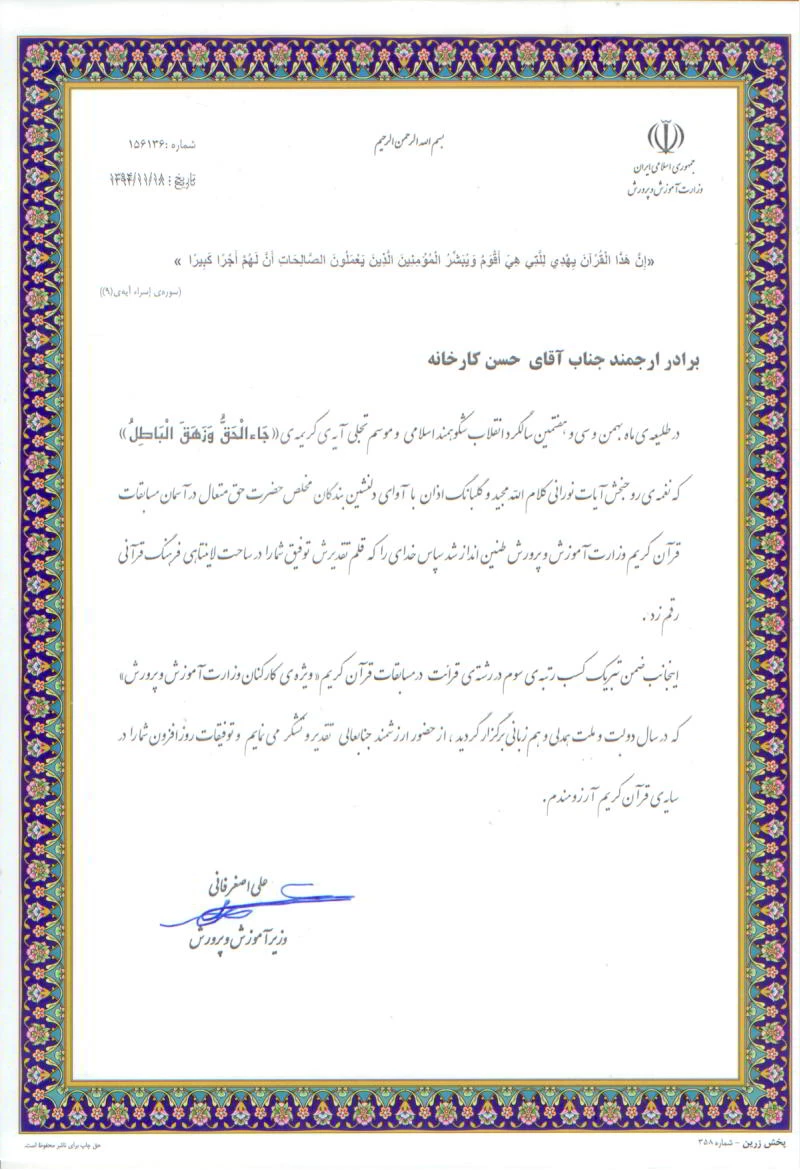 بسم الله الرحمن الرحیم
جمهوری اسلامی ایران
وزارت آموزش و پرورش
شماره : ۱۵۶۱۳۶
تاریخ : ۱۳۹۴/۱۱/۱۸
«إِنَّ هَذَا الْقُرْآنَ يِهْدِي لِلَّتِي هِيَ أَقْوَمُ وَيُبَشِّرُ الْمُؤْمِنِينَ الَّذِينَ يَعْمَلُونَ الصَّالِحَاتِ أَنَّ لَهُمْ أَجْرًا كَبِيرًا »
(سوره‌ی إسراء آیه‌ی(۹))
برادر ارجمند جناب آقای حسن کارخانه
در طلیعه‌ی ماه بهمن و سی و هفتمین سالگرد انقلاب شکوهمند اسلامی و موسم تجلی آیه‌ی کریمه‌ی «جَاءالْحَقُّ وَزَهَقَ الْبَاطِلُ»
که نغمه‌ی روحبخش آیات نورانی کلام الله مجید و گلبانگ اذان با آوای دلنشین بندگان مخلص حضرت حق متعال در آسمان مسابقات
قرآن کریم وزارت آموزش و پرورش طنین انداز شد سپاس خدای را که قلم تقدیرش توفیق شما را در ساحت لایتناهی فرهنگ قرآنی
رقم زد .
اینجانب ضمن تبریک کسب رتبه‌ی سوم در رشته‌ی قرائت در مسابقات قرآن کریم «ویژه‌ی کارکنان وزارت آموزش و پرورش»
که در سال دولت و ملت همدلی و هم زبانی برگزار گردید ، از حضور ارزشمند جنابعالی تقدیر و تشکر می نمایم و توفیقات روز افزون شما را در
سایه‌ی قرآن کریم آرزومندم.
علی اصغر فانی
وزیر آموزش و پرورش
پخش زرین - شماره ۳۵۸
حق چاپ برای ناشر محفوظ است.